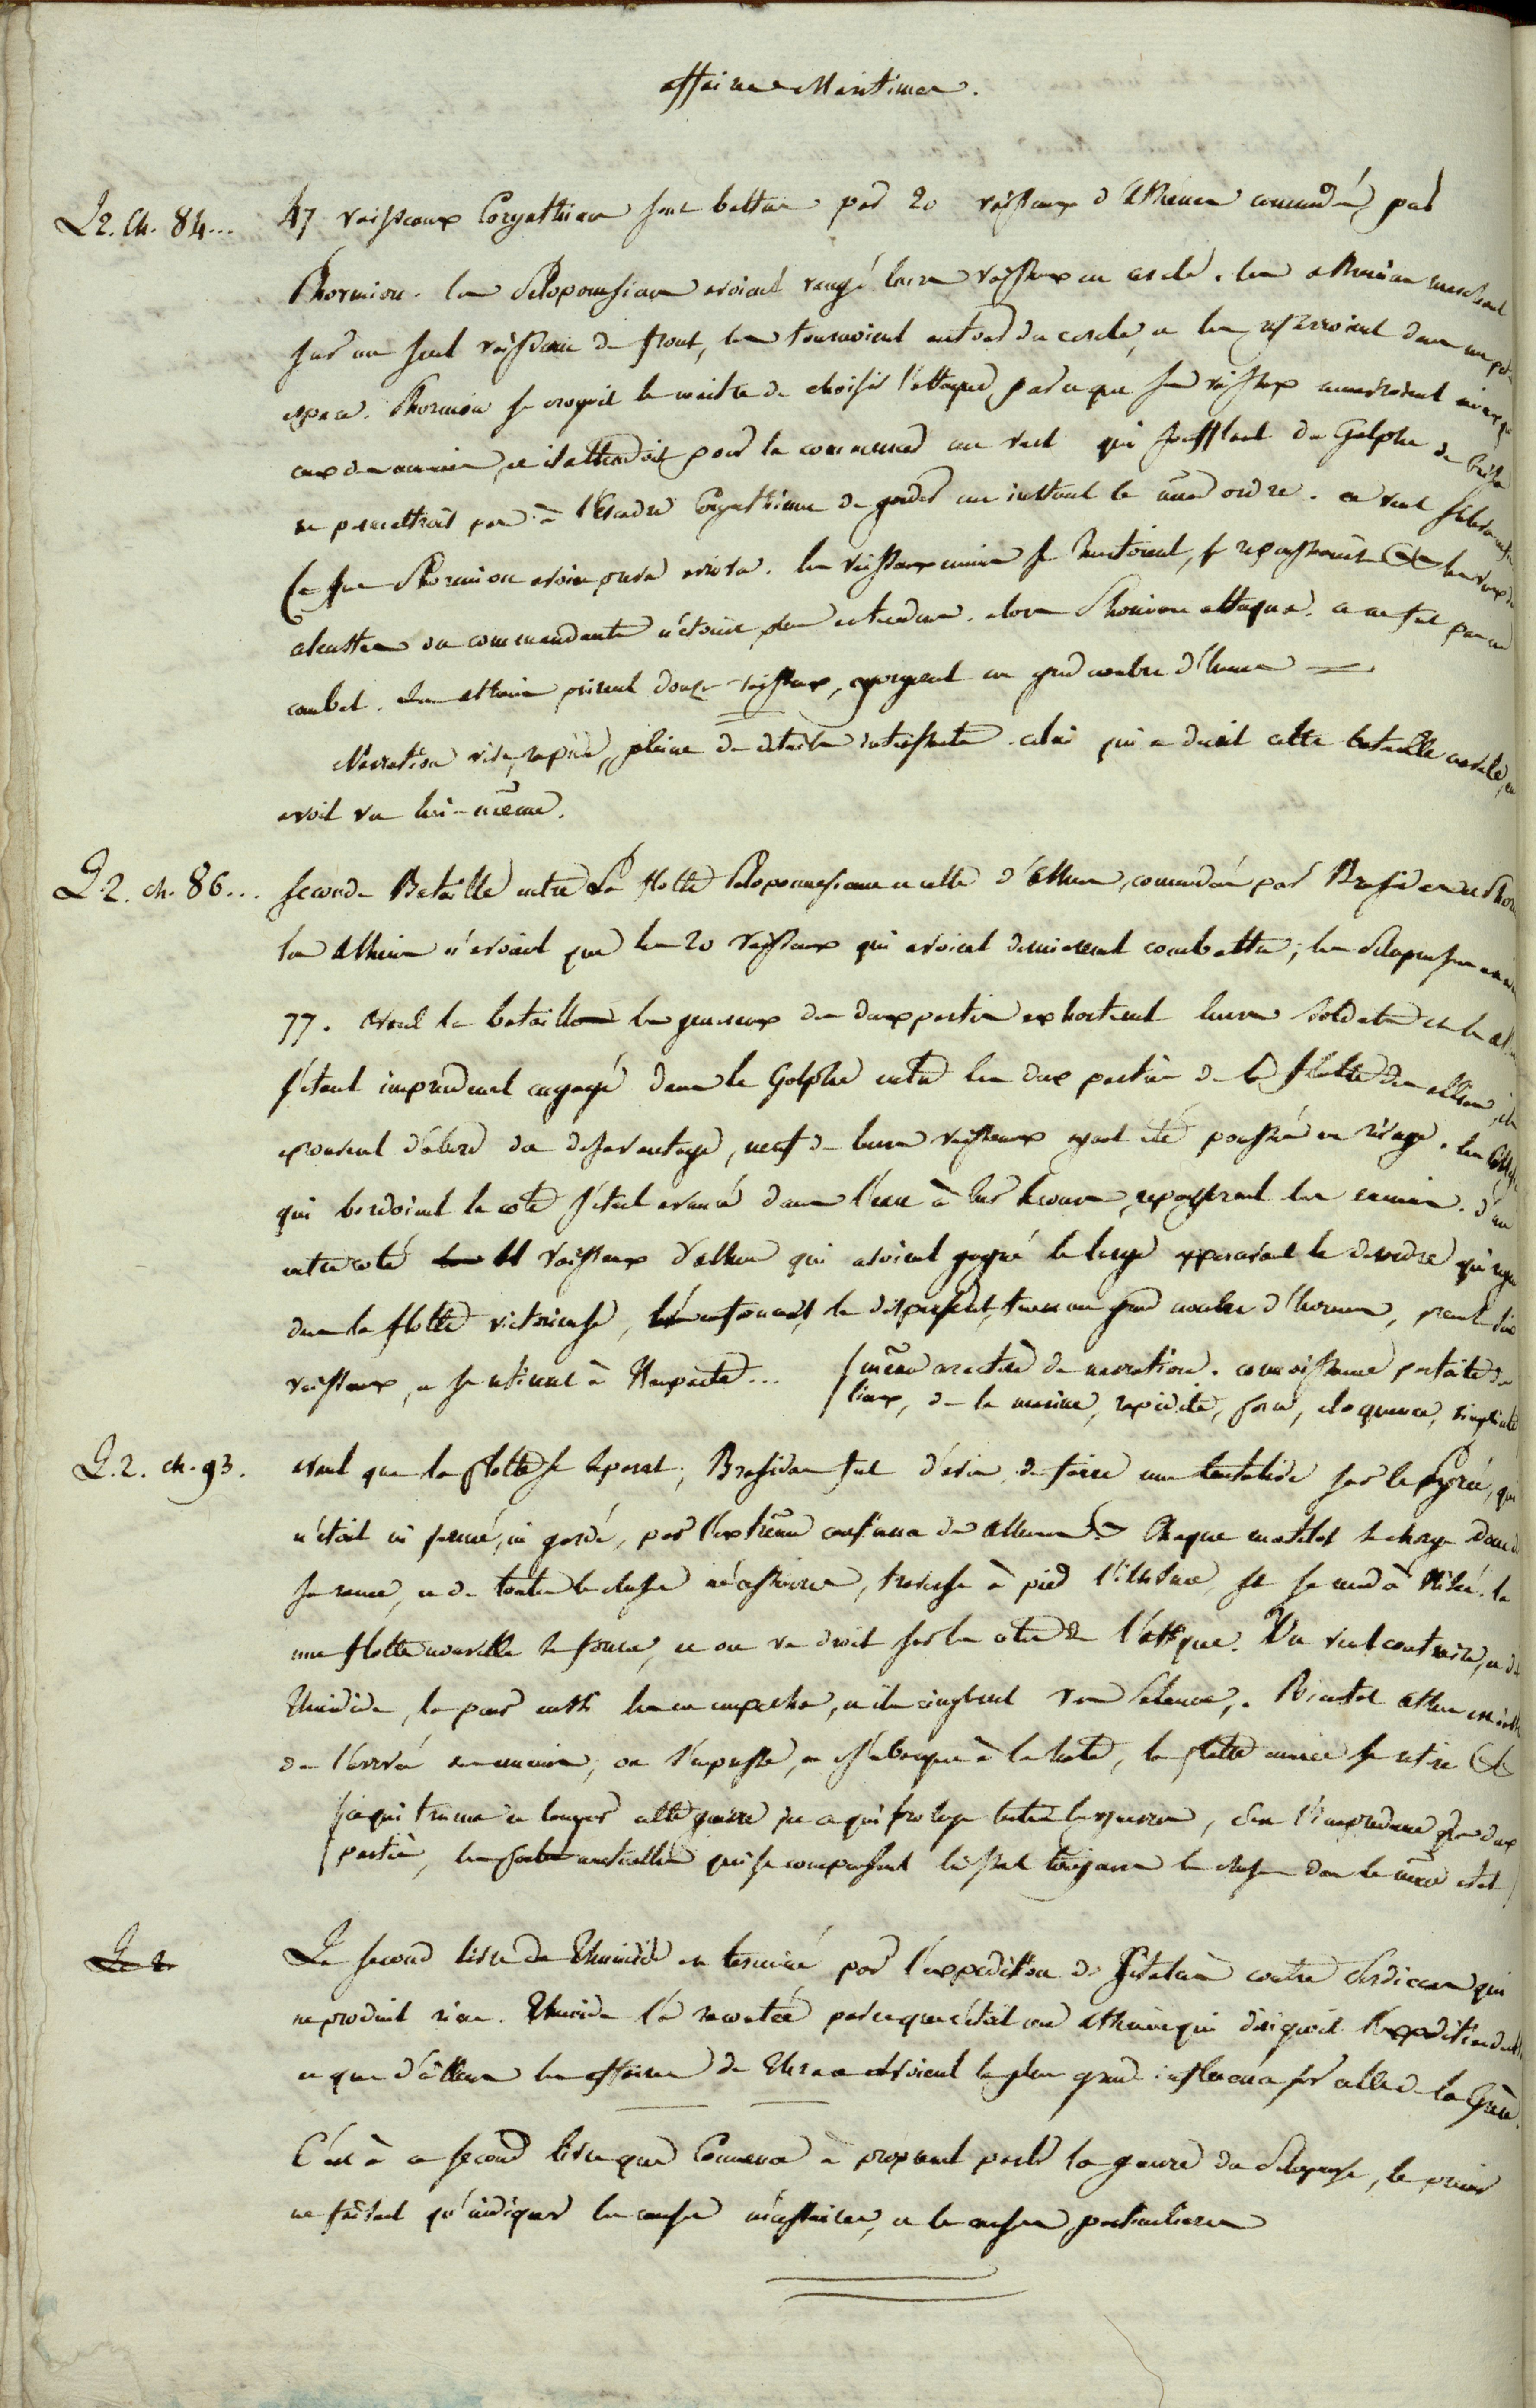 affaires Maritimes.
L 2. Ch. 84... 47 vaisseaux Corynthiens sont battus par 20 vaisseaux d'Athenes commandés par
Phormion. les Peloponesiens avoient rangé leurs vaisseaux en cercle. les atheniens marchant
sur un seul vaisseau de front, les tournoient autour du cercle, et les resserroient dans un
espace. Phormion se croyoit le maitre de choisir l'attaque, parceque ses vaisseaux
ceux des ennemis, et il attendoit pour la commencer un vent qui soufflant du Golphe de
ne permettroit pas à l'Escadre Corynthienne de garder un instant le même ordre. ce vent
Ce que Phormion avoit prevu arriva. les vaisseaux ennemis se heurtoient, se repoussoient &
ou commandants n'étoient plus entendus. alors Phormion attaqua. ce ne fut pas un
combat. Les atheniens prirent douze vaisseaux, egorgent un grand nombre d'hommes =
Narration vive, rapide, pleine de details interessants. celui qui a decrit cette bataille navale,
avoit vu lui-même.
L. 2. ch. 86... seconde Bataille entre La flotte Peloponnesienne et celle d'Athenes, commandées par Brasidas et
les Atheniens n'avoient que les 20 vaisseaux qui avoient dernierement combattu; les
77. avant la bataille les generaux des deux parties exhortent leurs soldats
s'étant imprudemment engagé dans le Golphe entre les deux parties de la flotte des
eprouvent d'abord du desavantage, neuf de leurs vaisseaux ayant été poussés au rivage. les
qui bordoient la cote s'étant avancé dans l'eau à leur secours, repoussent les ennemis. d'un
autre coté 11 vaisseaux d'athenes qui avoient gagné le large appercevant le desordre qui
dans la flotte victorieuse, la dispersent, tuent un grand nombre d'hommes, prennent six
vaisseaux, et se retirent à Naupacte... même caractère de narration. connoissance parfaite des
lieux, de la marine, rapidité, force, eloquence, simplicité
L. 2. ch. 93. avant que la flotte se separat, Brasidas fut d'avis de faire une tentative sur le Pyrée, qui
n'étoit ni fermé, ni gardé, par l'extrême confiance des Atheniens. Chaque matelot se charge
sa rame, et de toutes les choses nécessaires, traverse à pied l'isthme, et se rend à Nisée. la
une flotte nouvelle se forme, et on va droit sur les cotes de l'attique. Un vent contraire, et dit
Thucidide, la peur aussi les en empecha, et ils cinglent vers Salamine. Bientot Athenes est
de l'arrivée des ennemis; on s'embarque à la hate, la flotte ennemie se retire &
ce qui traine en longueur cette guerre et ce qui prolonge toutes les guerres, c'est l'imprudence des deux
partis, les fautes mutuelles qui se compensent laissent toujours les choses dans le même état
Le second livre de Thucidide est terminé par l'expedition de Sitalcès contre Perdiccas qui
ne produit rien. Thucidide l'a racontée parceque c'étoit un Athenien qui dirigeoit l'expedition
et que d'ailleurs les affaires de Thrace avoient la plus grande influence sur celles de la Grèce.
C'est à ce second livre que Commence à proprement parler la guerre du Peloponese, le premier
ne faisant qu'indiquer les causes nécessaires, et les causes particulieres